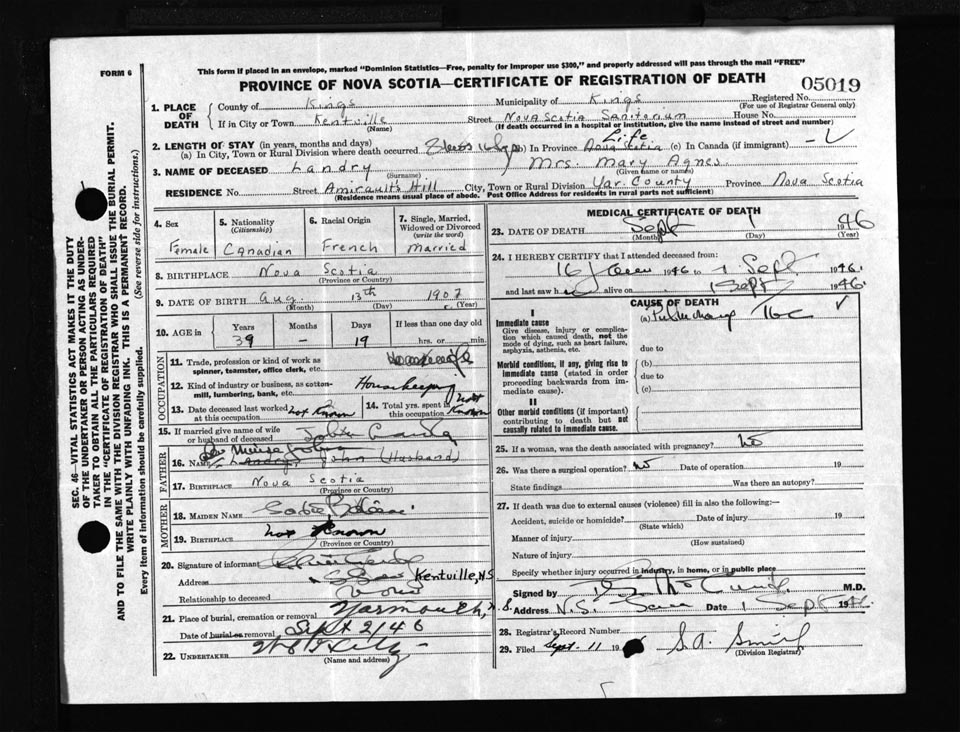 This form if placed in an envelope, marked "Dominion Statistics—Free, penalty for improper use $300," and properly addressed will pass through the mail "FREE"
FORM 6
PROVINCE OF NOVA SCOTIA—CERTIFICATE OF REGISTRATION OF DEATH
05019
1. PLACE OF DEATH County of Kings Municipality of Kings Registered No.
(For use of Registrar General only)
If in City or Town Kentville Street Nova Scotia Sanitorium House No.
(Name) (If death occurred in a hospital or institution, give the name instead of street and number)
2. LENGTH OF STAY (in years, months and days) Life
(a) In City, Town or Rural Division where death occurred (b) In Province Nova Scotia (c) In Canada (if immigrant)
3. NAME OF DECEASED Landry Mrs. Mary Agnes
(Surname) (Given name or names)
RESIDENCE No. Street Amiraults Hill City, Town or Rural Division Yar County Province Nova Scotia
(Residence means usual place of abode. Post Office Address for residents in rural parts not sufficient)
4. Sex 5. Nationality (Citizenship) 6. Racial Origin 7. Single, Married, Widowed or Divorced (write the word)
Female Canadian French Married
8. BIRTHPLACE Nova Scotia
(Province or Country)
9. DATE OF BIRTH Aug. 13th 1907
(Month) (Day) (Year)
10. AGE in Years Months Days If less than one day old
39 - 19 hrs. or min.
OCCUPATION
11. Trade, profession or kind of work as spinner, teamster, office clerk, etc. Housewife
12. Kind of industry or business, as cotton-mill, lumbering, bank, etc. Housekeeping
13. Date deceased last worked at this occupation Not Known 14. Total yrs. spent in this occupation Not Known
15. If married give name of wife or husband of deceased John
FATHER
16. NAME Landry, John (Husband)
17. BIRTHPLACE Nova Scotia
(Province or Country)
MOTHER
18. MAIDEN NAME
19. BIRTHPLACE Not Known
(Province or Country)
20. Signature of informant
Address Kentville, N.S.
Relationship to deceased
21. Place of burial, cremation or removal Yarmouth, N.S.
Date of burial or removal Sept 2/46
22. UNDERTAKER
(Name and address)
MEDICAL CERTIFICATE OF DEATH
23. DATE OF DEATH Sept 1 1946
(Month) (Day) (Year)
24. I HEREBY CERTIFY that I attended deceased from:
16 1946 to 1 Sept 1946.
and last saw h alive on 1 Sept 1946.
CAUSE OF DEATH
I
Immediate cause (a) Pulmonary Tbc
Give disease, injury or complication which caused death, not the mode of dying, such as heart failure, asphyxia, asthenia, etc.
due to
Morbid conditions, if any, giving rise to immediate cause (stated in order proceeding backwards from immediate cause).
(b)
due to
(c)
II
Other morbid conditions (if important) contributing to death but not causally related to immediate cause.
25. If a woman, was the death associated with pregnancy? No
26. Was there a surgical operation? No Date of operation 19
State findings Was there an autopsy?
27. If death was due to external causes (violence) fill in also the following:—
Accident, suicide or homicide? Date of injury 19
(State which)
Manner of injury
(How sustained)
Nature of injury
Specify whether injury occurred in industry, in home, or in public place
Signed by M.D.
Address N.S. Date 1 Sept 1946
28. Registrar's Record Number
29. Filed Sept. 11 19 S.A. Smith
(Division Registrar)
SEC. 46—VITAL STATISTICS ACT MAKES IT THE DUTY OF THE UNDERTAKER OR PERSON ACTING AS UNDERTAKER TO OBTAIN ALL THE PARTICULARS REQUIRED IN THE "CERTIFICATE OF REGISTRATION OF DEATH" AND TO FILE THE SAME WITH THE DIVISION REGISTRAR WHO SHALL ISSUE THE BURIAL PERMIT.
WRITE PLAINLY WITH UNFADING INK. THIS IS A PERMANENT RECORD.
Every item of information should be carefully supplied. (See reverse side for instructions.)